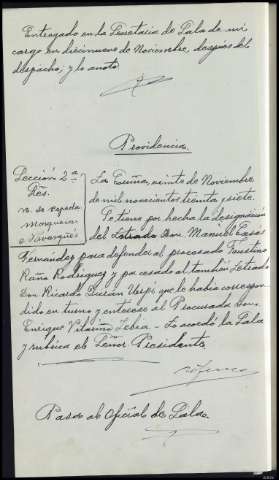 Entregado en la Secretaria de Sala de mi
cargo en diecinueve de Noviembre, despues del
despacho, y lo anoto.
Providencia
Sección 2ª
Sres.
La Coruña, veinte de Noviembre
de mil novecientos treinta y siete.
Se tiene por hecha la designación
del Letrado Don Manuel Casás
Fernández para defender al procesado Faustino
Rodriguez y por cesado al tambien Letrado
Don Ricardo que le habia correspon-
dido en turno y enterese al Procurador Don
Enrique - Lo acordó la Sala
y rubrica el Señor Presidente
Pasa al Oficial de Sala.